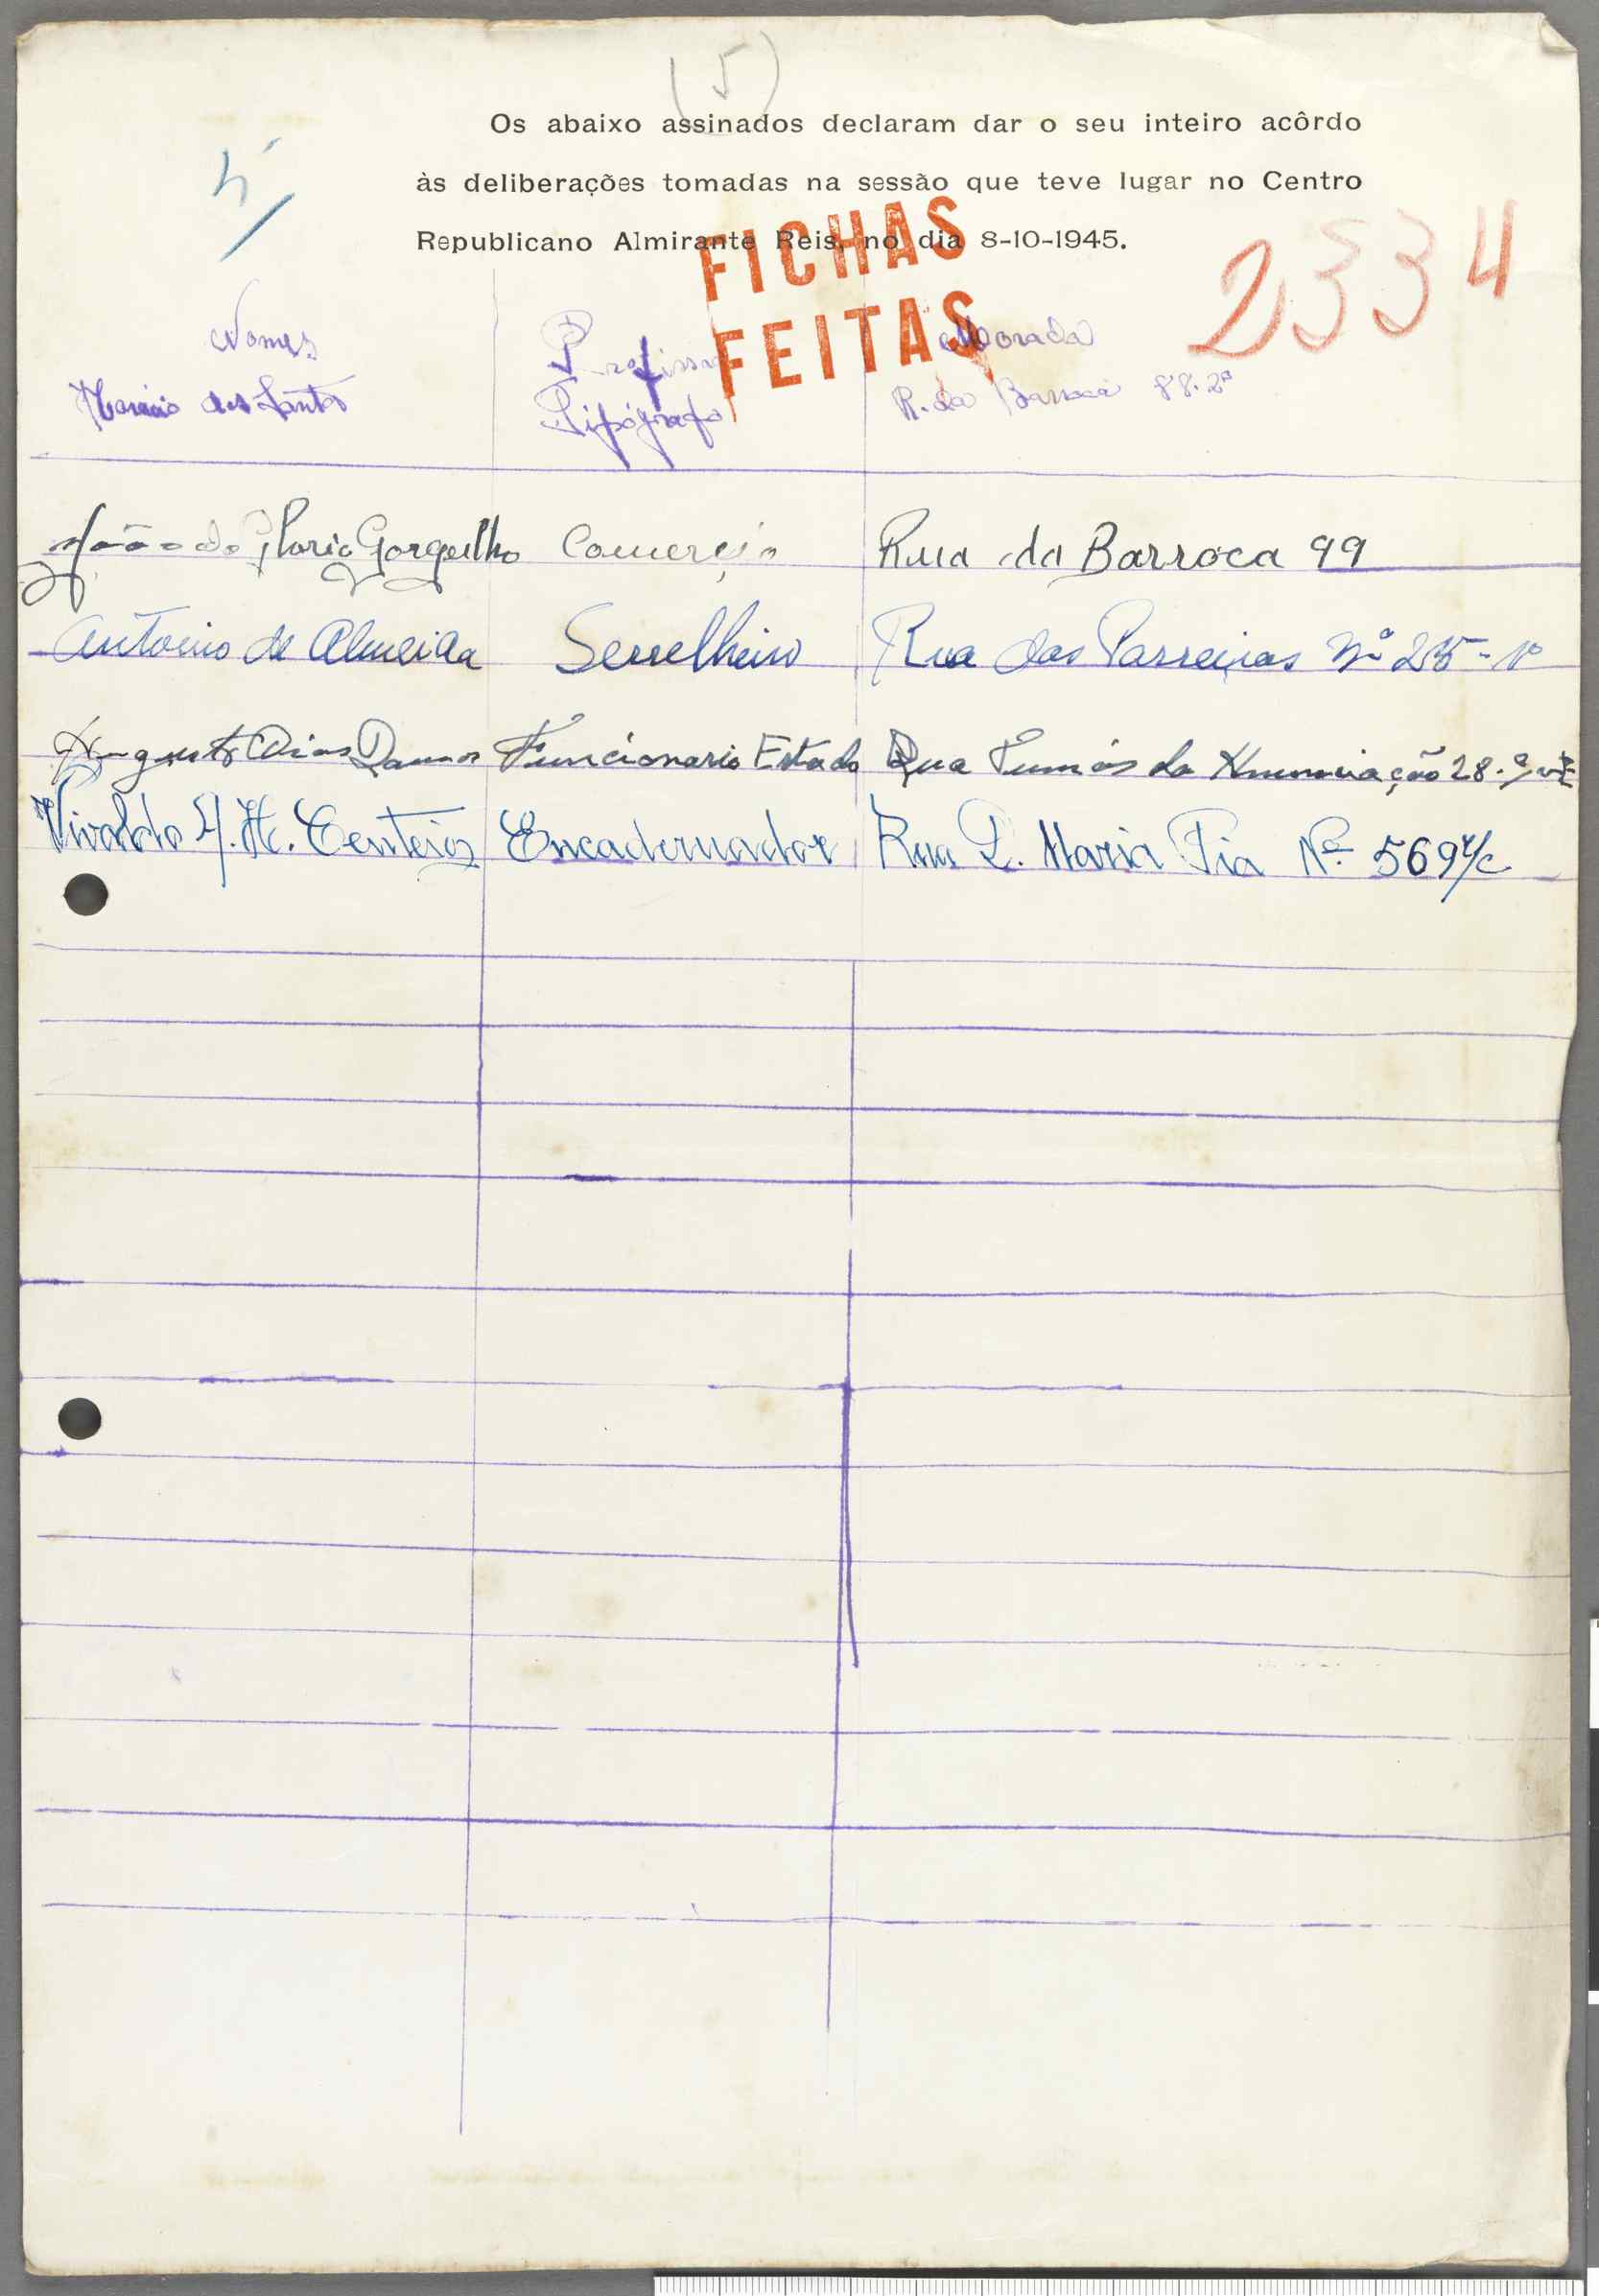 (5)
5
Os abaixo assinados declaram dar o seu inteiro acôrdo
às deliberações tomadas na sessão que teve lugar no Centro
Republicano Almirante Reis, no dia 8-10-1945.
FICHAS
FEITAS
2334
Nomes Morada
dos Santos Tipógrafo R. da Barroca 88. 2º
João da Gloria Gorgulho Comercio Rua da Barroca 99
Antonio de Almeida Serrelheiro Rua das Parreiras Nº
Augusto Dias Ramos Funcionario Estado Rua Tumás da Anunciação 28
Vivaldo Encadernador Rua D. Maria Pia Nº 569 r/c